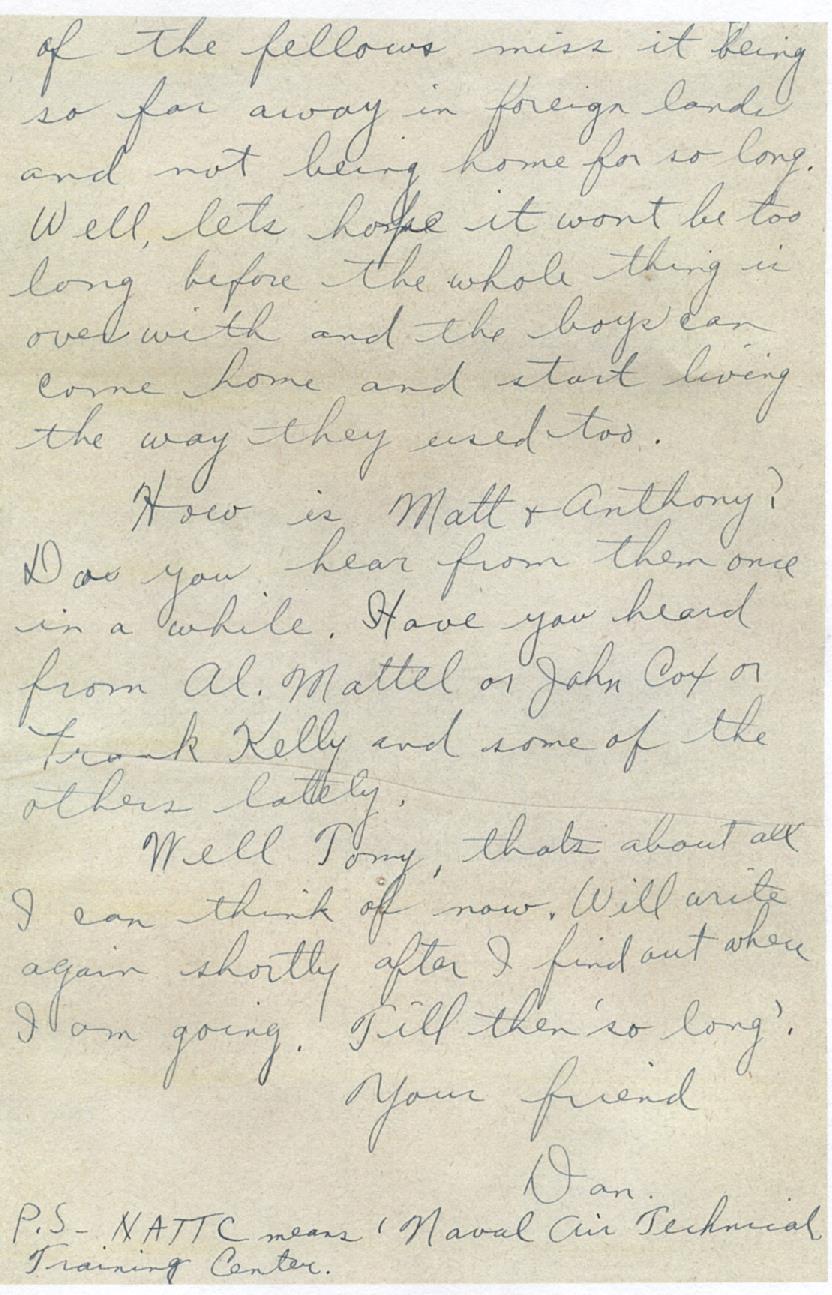 of the fellows miss it being
so far away in foreign lands
and not being home for so long.
Well, lets hope it wont be too
long before the whole thing is
over with and the boys can
come home and start living
the way they used too.
How is Matt & Anthony?
Do you hear from them once
in a while. Have you heard
from Al. Mattel or John Cox or
Frank Kelly and some of the
others lately.
Well Tony, thats about all
I can think of now. Will write
again shortly after I find out where
I am going. Till then 'so long'.
Your friend
Dan.
P.S- NATTC means 'Naval Air Technical
Training Center.